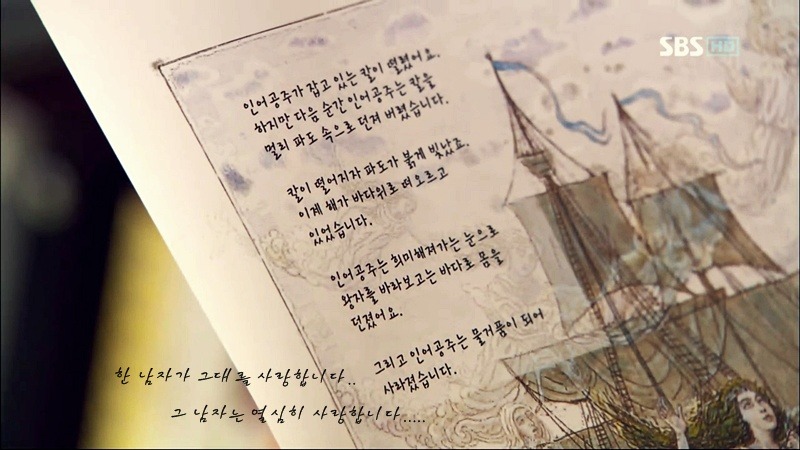 SBS HD
인어공주가 잡고 있는 칼이 떨렸어요.
하지만 다음 순간 인어공주는 칼을
멀리 파도 속으로 던져 버렸습니다.
칼이 떨어지자 파도가 붉게 빛났죠.
이제 해가 바다위로 떠오르고
있었습니다.
인어공주는 희미해져가는 눈으로
왕자를 바라보고는 바다로 몸을
던졌어요.
그리고 인어공주는 물거품이 되어
사라졌습니다.
한 남자가 그대를 사랑합니다..
그 남자는 열심히 사랑합니다.....